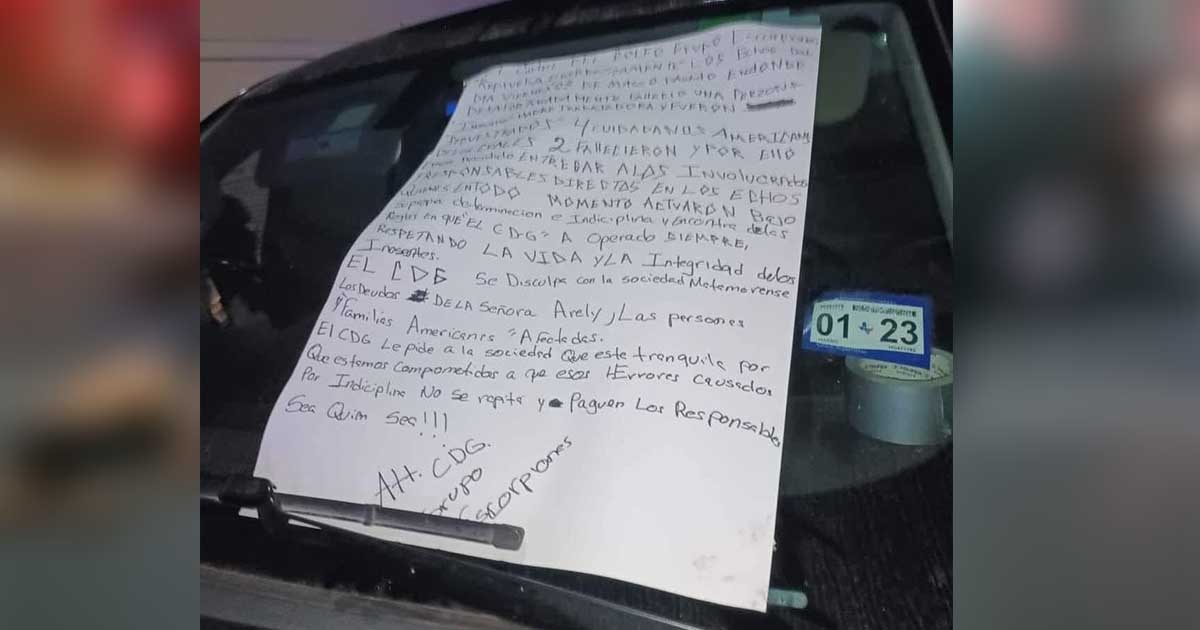 EL CARTEL DEL GOLFO GRUPO Escorpiones
REPRUEBA ENERGICAMENTE LOS Echos DEL
DIA VIERNES 03 DE MARZO PASADO EN DONDE
DESAFORTUNADAMENTE FALLECIO UNA PERSONA
MADRE TRABAJADORA Y FUERON
4 CUIDADANOS AMERICANOS
DE LOS CUALES 2 FALLECIERON Y POR ELLO
Emos decidido ENTREGAR A LAS INVOLUCRADOS
RESPONSABLES DIRECTAS EN LOS ECHOS
QUIENES EN TODO MOMENTO ACTUARON BAJO
su propia determinacion e Indiciplina y Encontra delas
Reglas en que "EL CDG" A Operado SIEMPRE,
RESPETANDO LA VIDA Y LA Integridad delos
Inosentes.
EL CDG Se Disculpa con la sociedad Matamorense
Los Deudos DE LA Señora Arely, Las personas
y Familias Americanas "Afectadas.
El CDG Le pide a la sociedad Que este tranquila por
Que estamos Comprometidos a que esos Errores Causados
Por Indiciplina No se repita y Paguen Los Responsables
Sea Quim Sea!!!
Att. CDG.
Grupo
Escorpiones
01 23